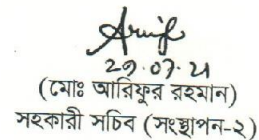 29.07.21
(মোঃ আরিফুর রহমান)
সহকারী সচিব (সংস্থাপন-২)